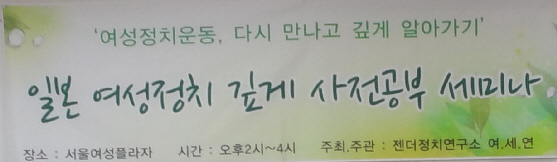 '여성정치운동, 다시 만나고 깊게 알아가기'
일본 여성정치 깊게 사전공부 세미나
장소 : 서울여성플라자 시간 : 오후2시~4시 주최.주관 : 젠더정치연구소 여.세.연